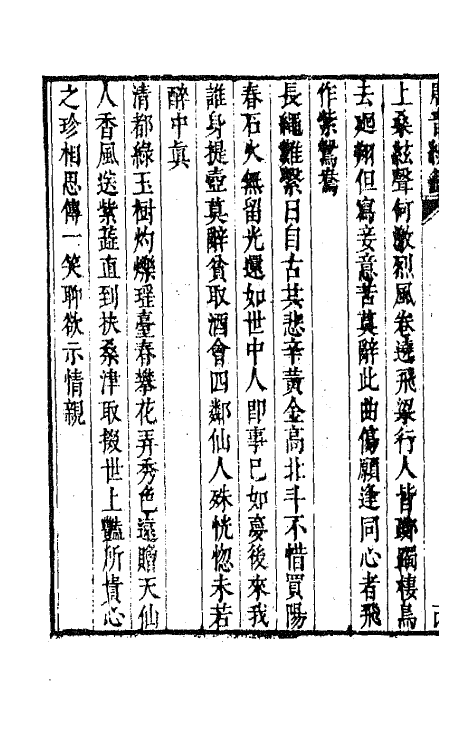 上桑絃聲何激烈風卷遶飛梁行人皆躑躅棲烏
去廻翔但寫妾意苦莫辭此曲傷願逢同心者飛
作紫鴛鴦
長繩難繫日自古共悲辛黃金高北斗不惜買陽
春石火無留光還如世中人即事已如夢後來我
誰身提壺莫辭貧取酒會四鄰仙人殊恍惚未若
醉中眞
清都綠玉樹灼爍瑶臺春攀花弄秀色遠贈天仙
人香風送紫蕋直到扶桑津取掇世上豔所貴心
之珍相思傳一笑聊欲示情親